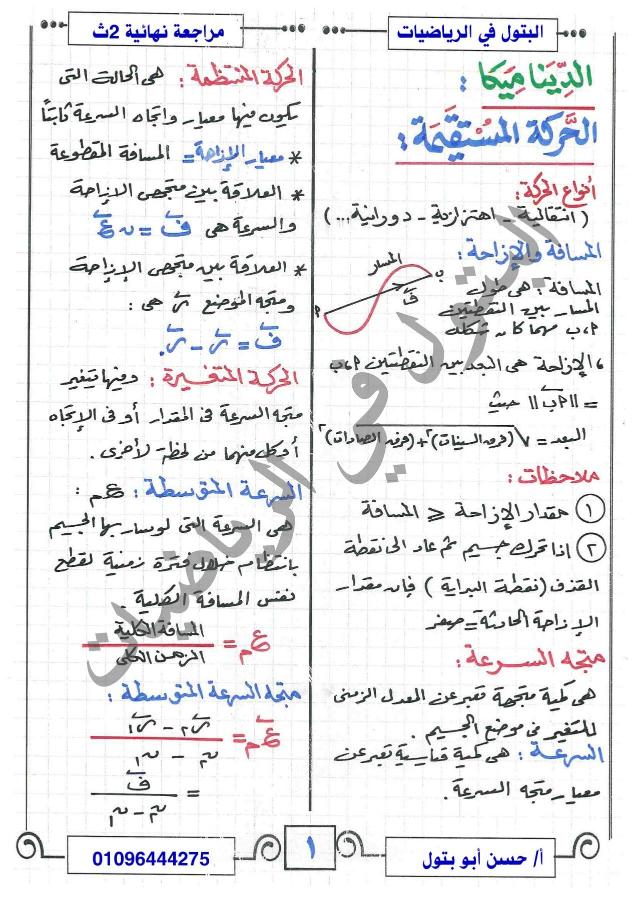 البتول في الرياضيات
مراجعة نهائية 2ث
الدِّينَامِيكا :
الحَرَكة المُسْتَقِيمَة :
أنواع الحركة :
( انتقالية - اهتزازية - دورانية ... )
المسافة والإزاحة :
المسافة : هى طول
المسار بين النقطتين
P ، ب مهما كان شكله
المسار
ف
ب
P
، الإزاحة هى البعد بين النقطتين P ، ب
= || P ب || حيث
البعد = √(فرق السينات)² + (فرق الصادات)²
ملاحظات :
١ مقدار الإزاحة ⩽ المسافة
٢ إذا تحرك جسيم ثم عاد الى نقطة
القذف ( نقطة البداية ) فإن مقدار
الإزاحة الحادثة = صفر
متجه السرعة :
هى كمية متجهة تعبر عن المعدل الزمنى
للتغير فى موضع الجسيم .
السرعة : هى كمية قياسية تعبر عن
معيار متجه السرعة .
الحركة المنتظمة : هى الحالة التى
يكون فيها معيار واتجاه السرعة ثابتاً
* معيار الإزاحة = المسافة المقطوعة
* العلاقة بين متجهى الإزاحة
والسرعة هى ف = ن ع
* العلاقة بين متجهى الإزاحة
ومتجه الموضع ر هى :
ف = ر - ر.
الحركة المتغيرة : وفيها يتغير
متجه السرعة فى المقدار أو فى الإتجاه
أو كل منهما من لحظة لأخرى .
السرعة المتوسطة : عم :
هى السرعة التى لو سار بها الجسيم
بانتظام خلال فترة زمنية لقطع
نفس المسافة الكلية
عم = المسافة الكلية
الزمن الكلى
متجه السرعة المتوسطة :
عم = ر٢ - ر١
ن٢ - ن١
= ف
ن٢ - ن١
البتول في الرياضيات
أ/ حسن أبو بتول
١
01096444275